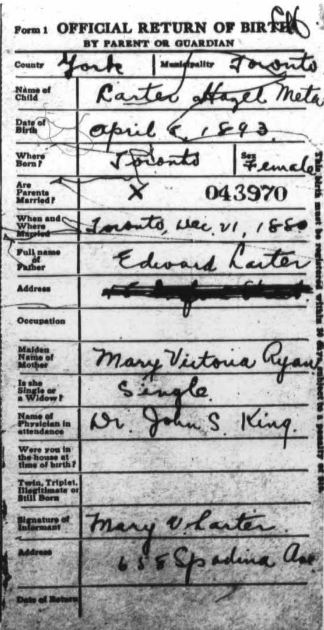 Form 1 OFFICIAL RETURN OF BIRTH
BY PARENT OR GUARDIAN
County York Municipality Toronto
Name of Child Carter Hazel Meta
Date of Birth April 8, 1893
Where Born? Toronto Sex Female
Are Parents Married? X 043970
When and Where Married Toronto, Dec. 21, 1880
Full name of Father Edward Carter
Address
Occupation
Maiden Name of Mother Mary Victoria Ryan
Is she Single or a Widow? Single
Name of Physician in attendance Dr. John S King.
Were you in the house at time of birth?
Twin, Triplet, Illegitimate or Still Born
Signature of Informant Mary V. Carter
Address 658 Spadina Ave
Date of Return
This birth must be registered within 30 days, subject to a penalty of